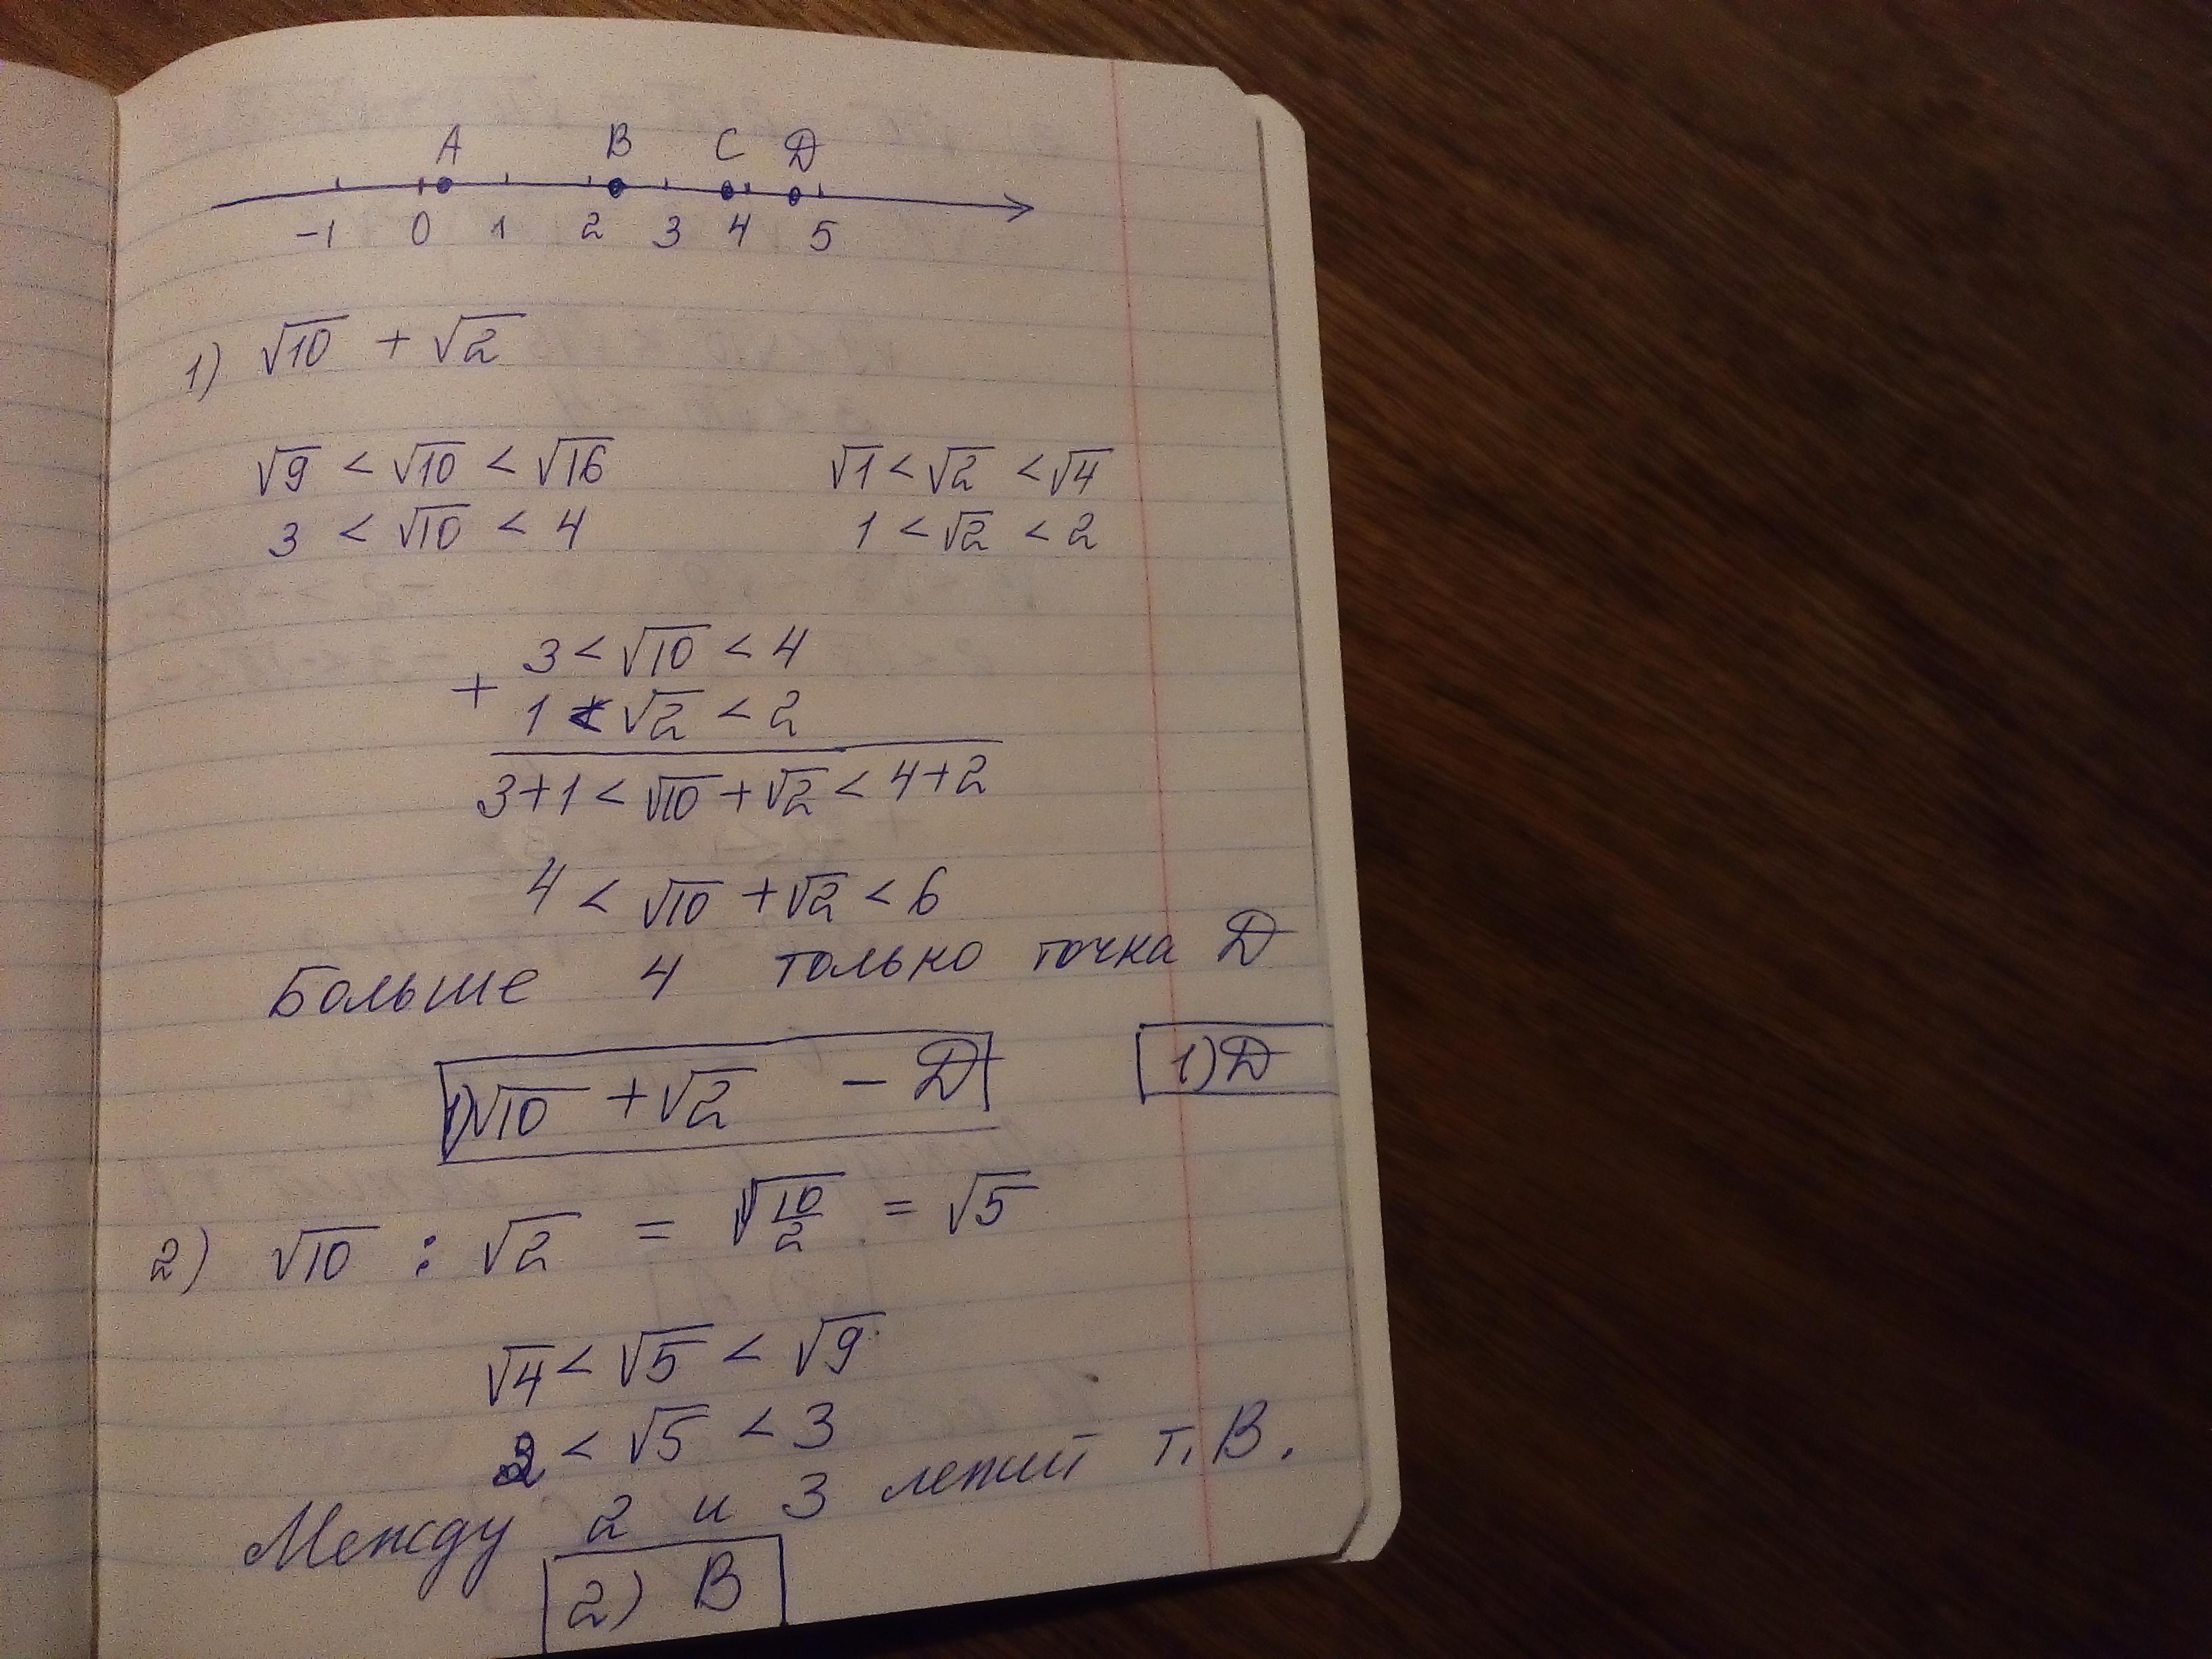 A B C D
-1 0 1 2 3 4 5
1) √10 + √2
√9 < √10 < √16 √1 < √2 < √4
3 < √10 < 4 1 < √2 < 2
3 < √10 < 4
+
1 < √2 < 2
3+1 < √10 + √2 < 4+2
4 < √10 + √2 < 6
Больше 4 только точка D
1) √10 + √2 - D 1) D
2) √10 : √2 = √10/2 = √5
√4 < √5 < √9
2 < √5 < 3
Между 2 и 3 лежит т. В.
2) В